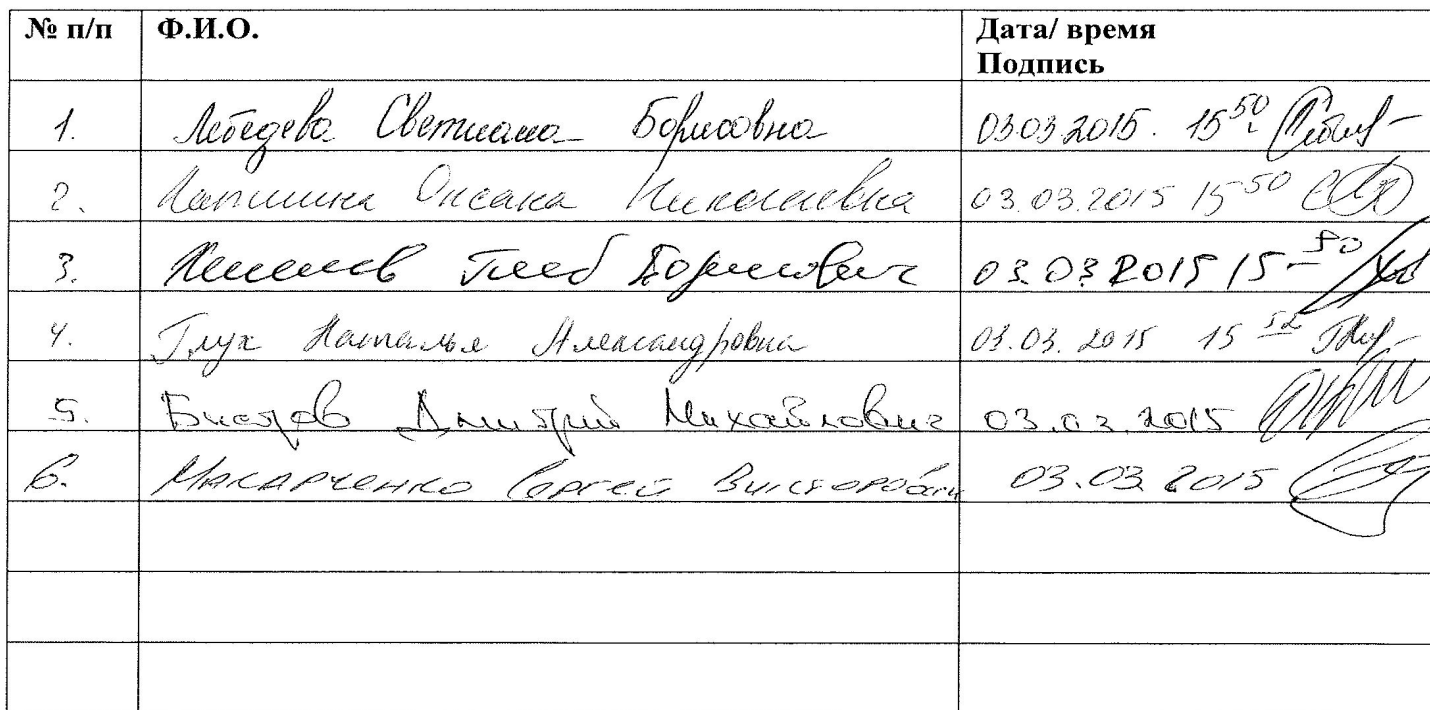 № п/п Ф.И.О. Дата/ время
Подпись
1. Лебедева Светлана Борисовна 03.03.2015. 15 50
2. Лапшина Оксана Николаевна 03.03.2015 15 50
3. Глеб Борисович 03.03 2015 15-50
4. Глух Наталья Александровна 03.03. 2015 15 52
5. Дмитрий Михайлович 03.03.2015
6. Макарченко Сергей Викторович 03.03.2015